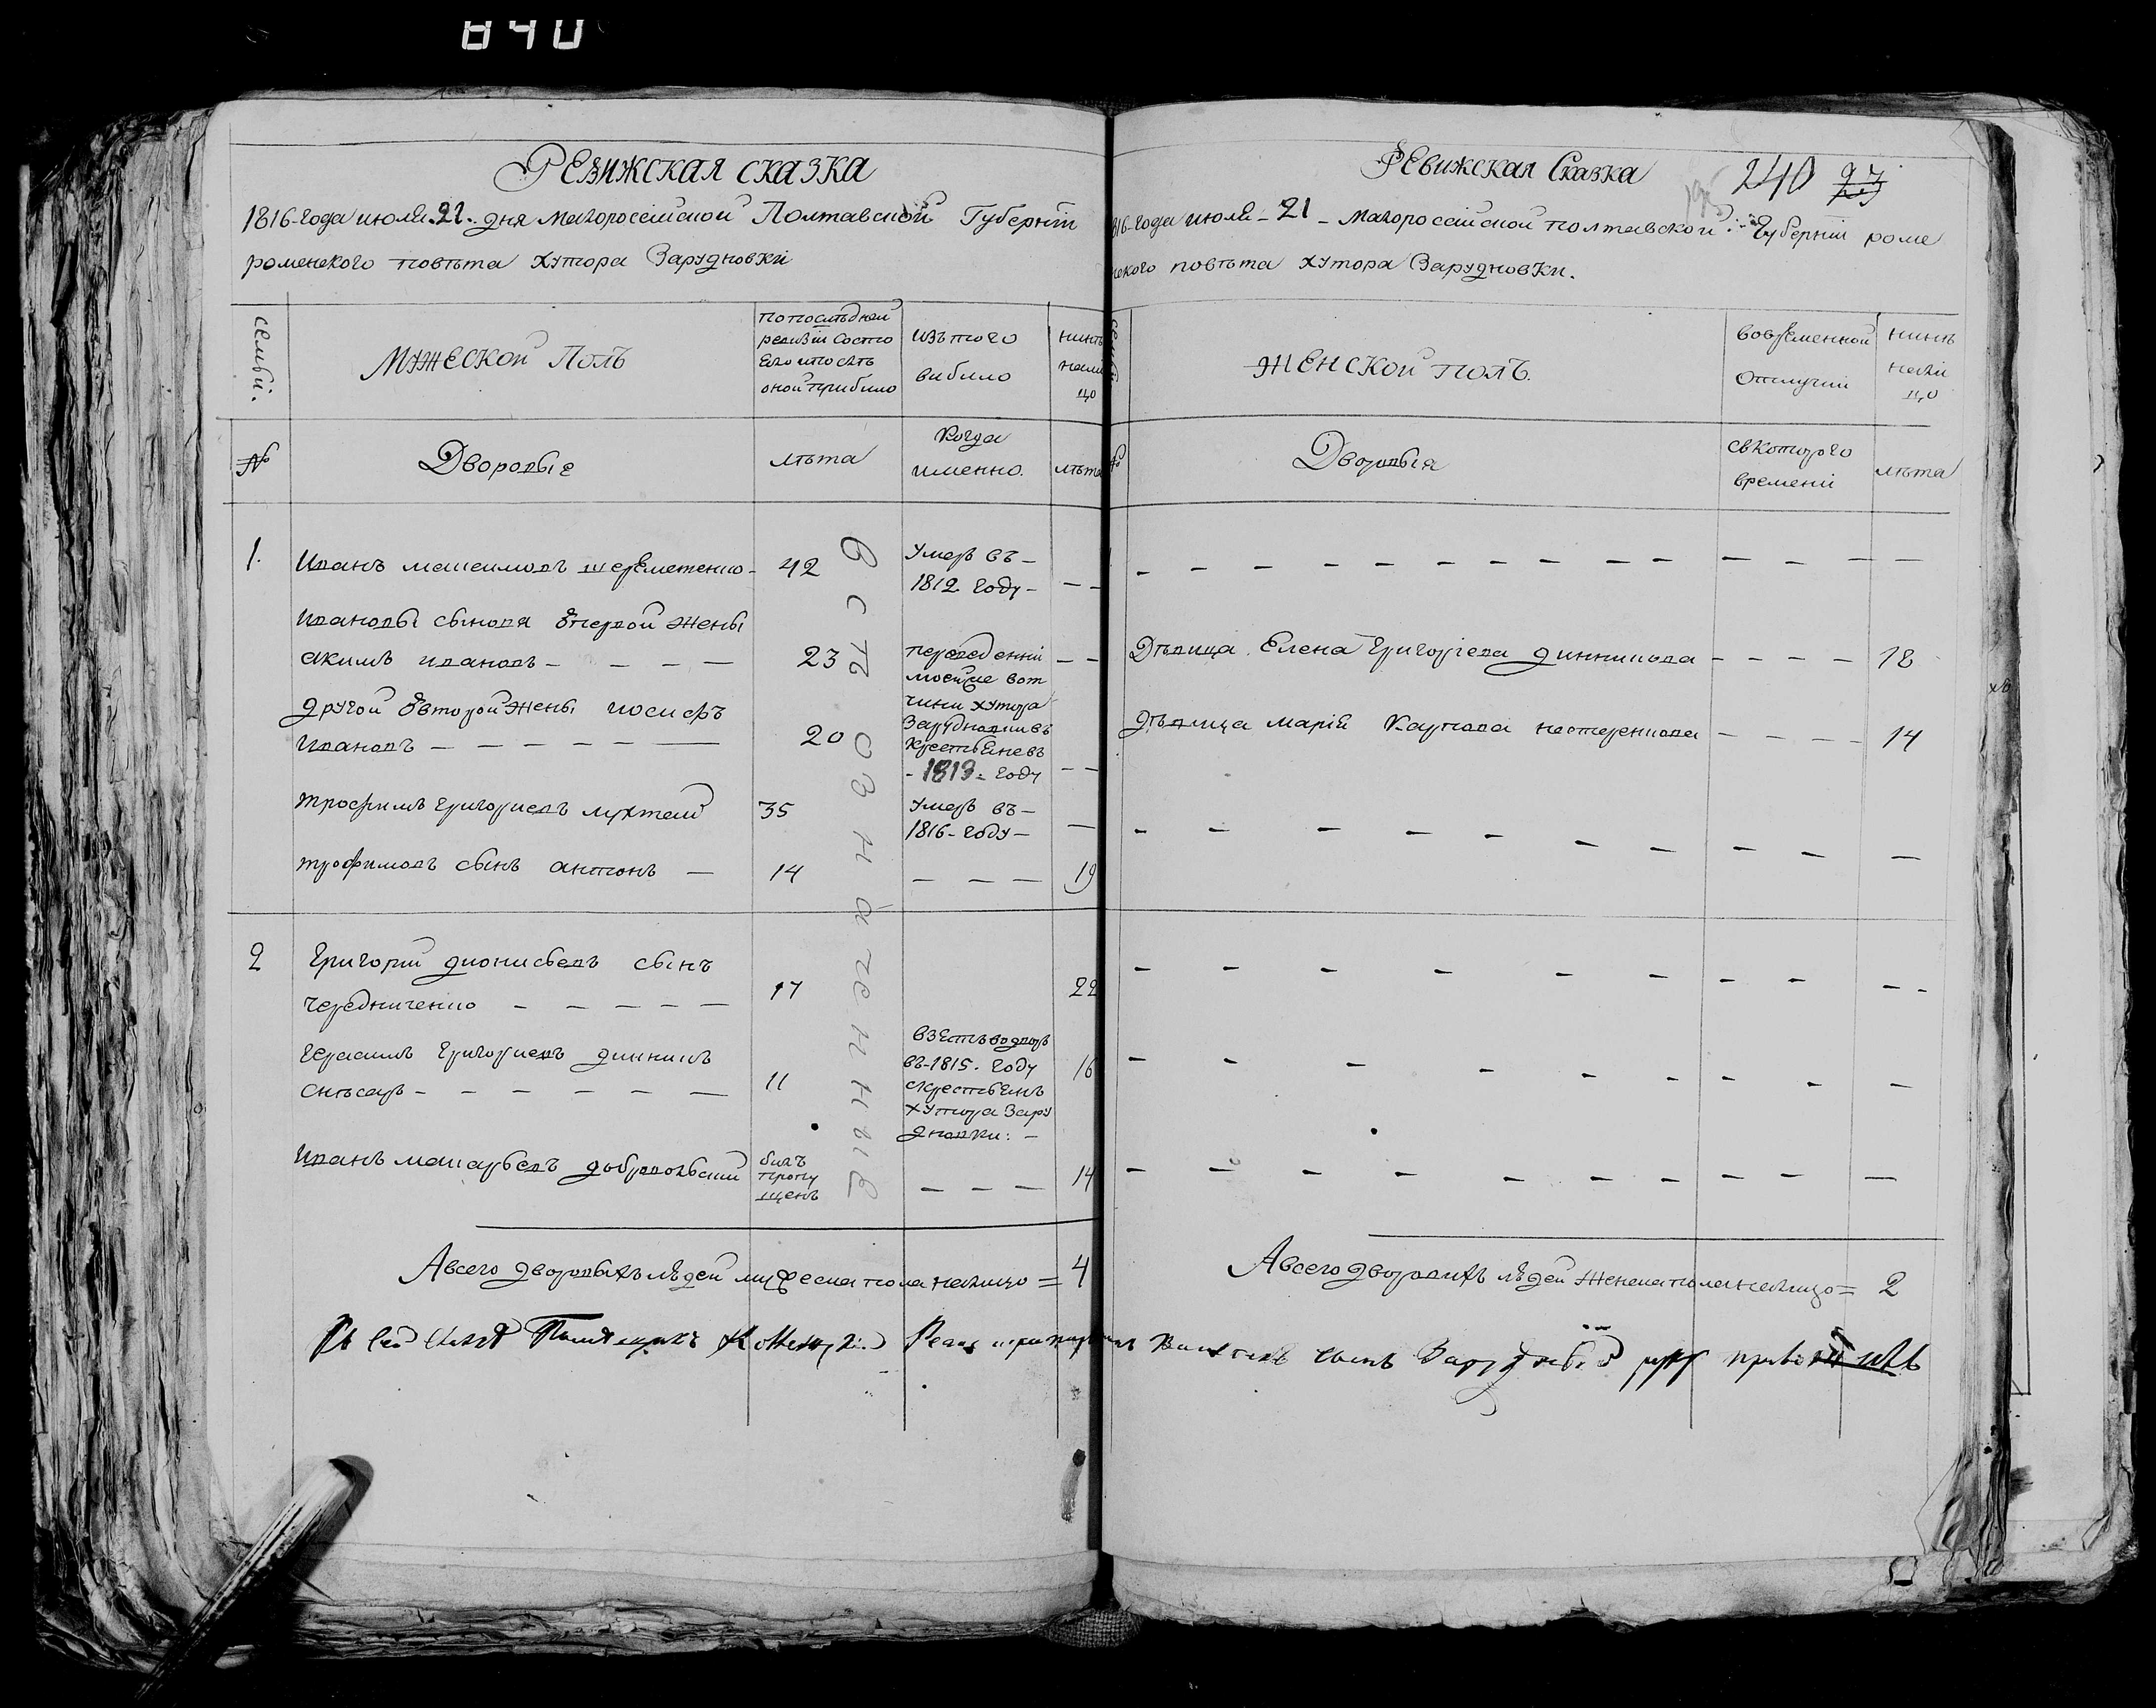 840
РЕВИЖСКАЯ СКАЗКА
1816-года июля.21. дня Малороссійской Полтавской Губерніи
роменского повѣта хутора Зарудновки
семьи.
МУЖЕСКОЙ ПОЛЪ
попослѣдней
ревизіи состо
яло и послѣ
оной прибило
изъ того
вибило
нинѣ
нали
цо
№
Дворовые
лѣта
Когда
именно.
лѣта
1.
Иванъ максимовъ шереметенко - 42
Умеръ въ -
1812 году -
Ивановы сыновя 1 первой жены
якимъ ивановъ - - - - 23
другой 1 второй жены иосифъ
Ивановъ - - - - - - 20
переведенні
мое же вот
чини хутора
крестьяне въ
- 1813 - году
трофимъ григориевъ 35
Умеръ въ -
1816 - году -
трофимовъ сынъ антонъ - 14 - - - 19
2
Григорий дионисьевъ сынъ
чередниченко - - - - - 17 22
герасимъ григориевъ динникъ
слѣсарь - - - - - - 11
взятъ водворъ
въ-1815. году
скрестьянъ
хутора Зару
дновки: -
16
Иванъ макарьевъ добровольский
билъ
пропу
щенъ
- - - 14
Авсего дворовыхъ людей мужеска пола налицо = 4
РЕВИЖСКАЯ Сказка
240 97
1816-года июля - 21 - Малороссійской полтавской Губерніи роме
нского повѣта хутора Зарудновки.
ЖЕНСКОЙ ПОЛЪ.
вовременной
отлучки
нинѣ
нали
цо
№
Дворовыя
скоторого
времени
лѣта
Дѣвица Елена Григориева динникова - - - - 18
дѣвица марія Карпова нестеренкова - - - - 14
Авсего дворовихъ людей женска пола налицо = 2